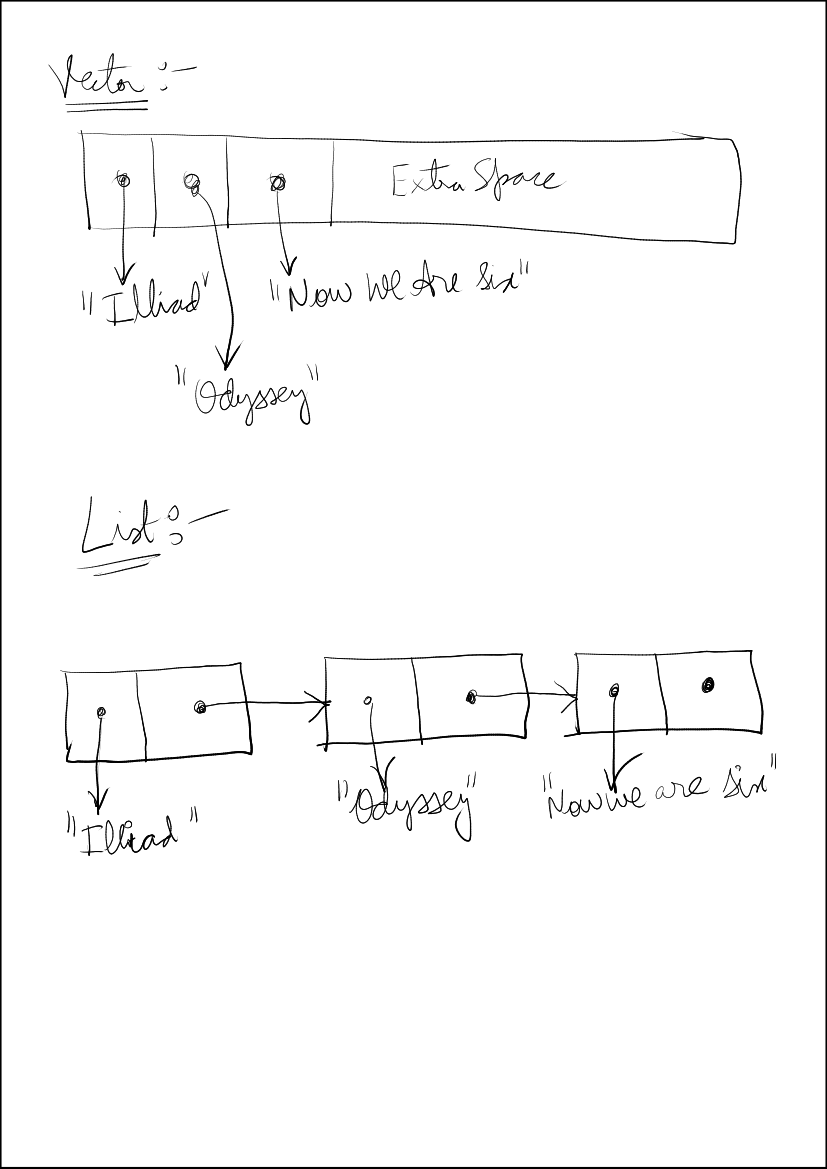 Vector :-
Extra Space
"Illiad" "Now We Are Six"
"Odyssey"
List :-
"Illiad" "Odyssey" "Now we are six"